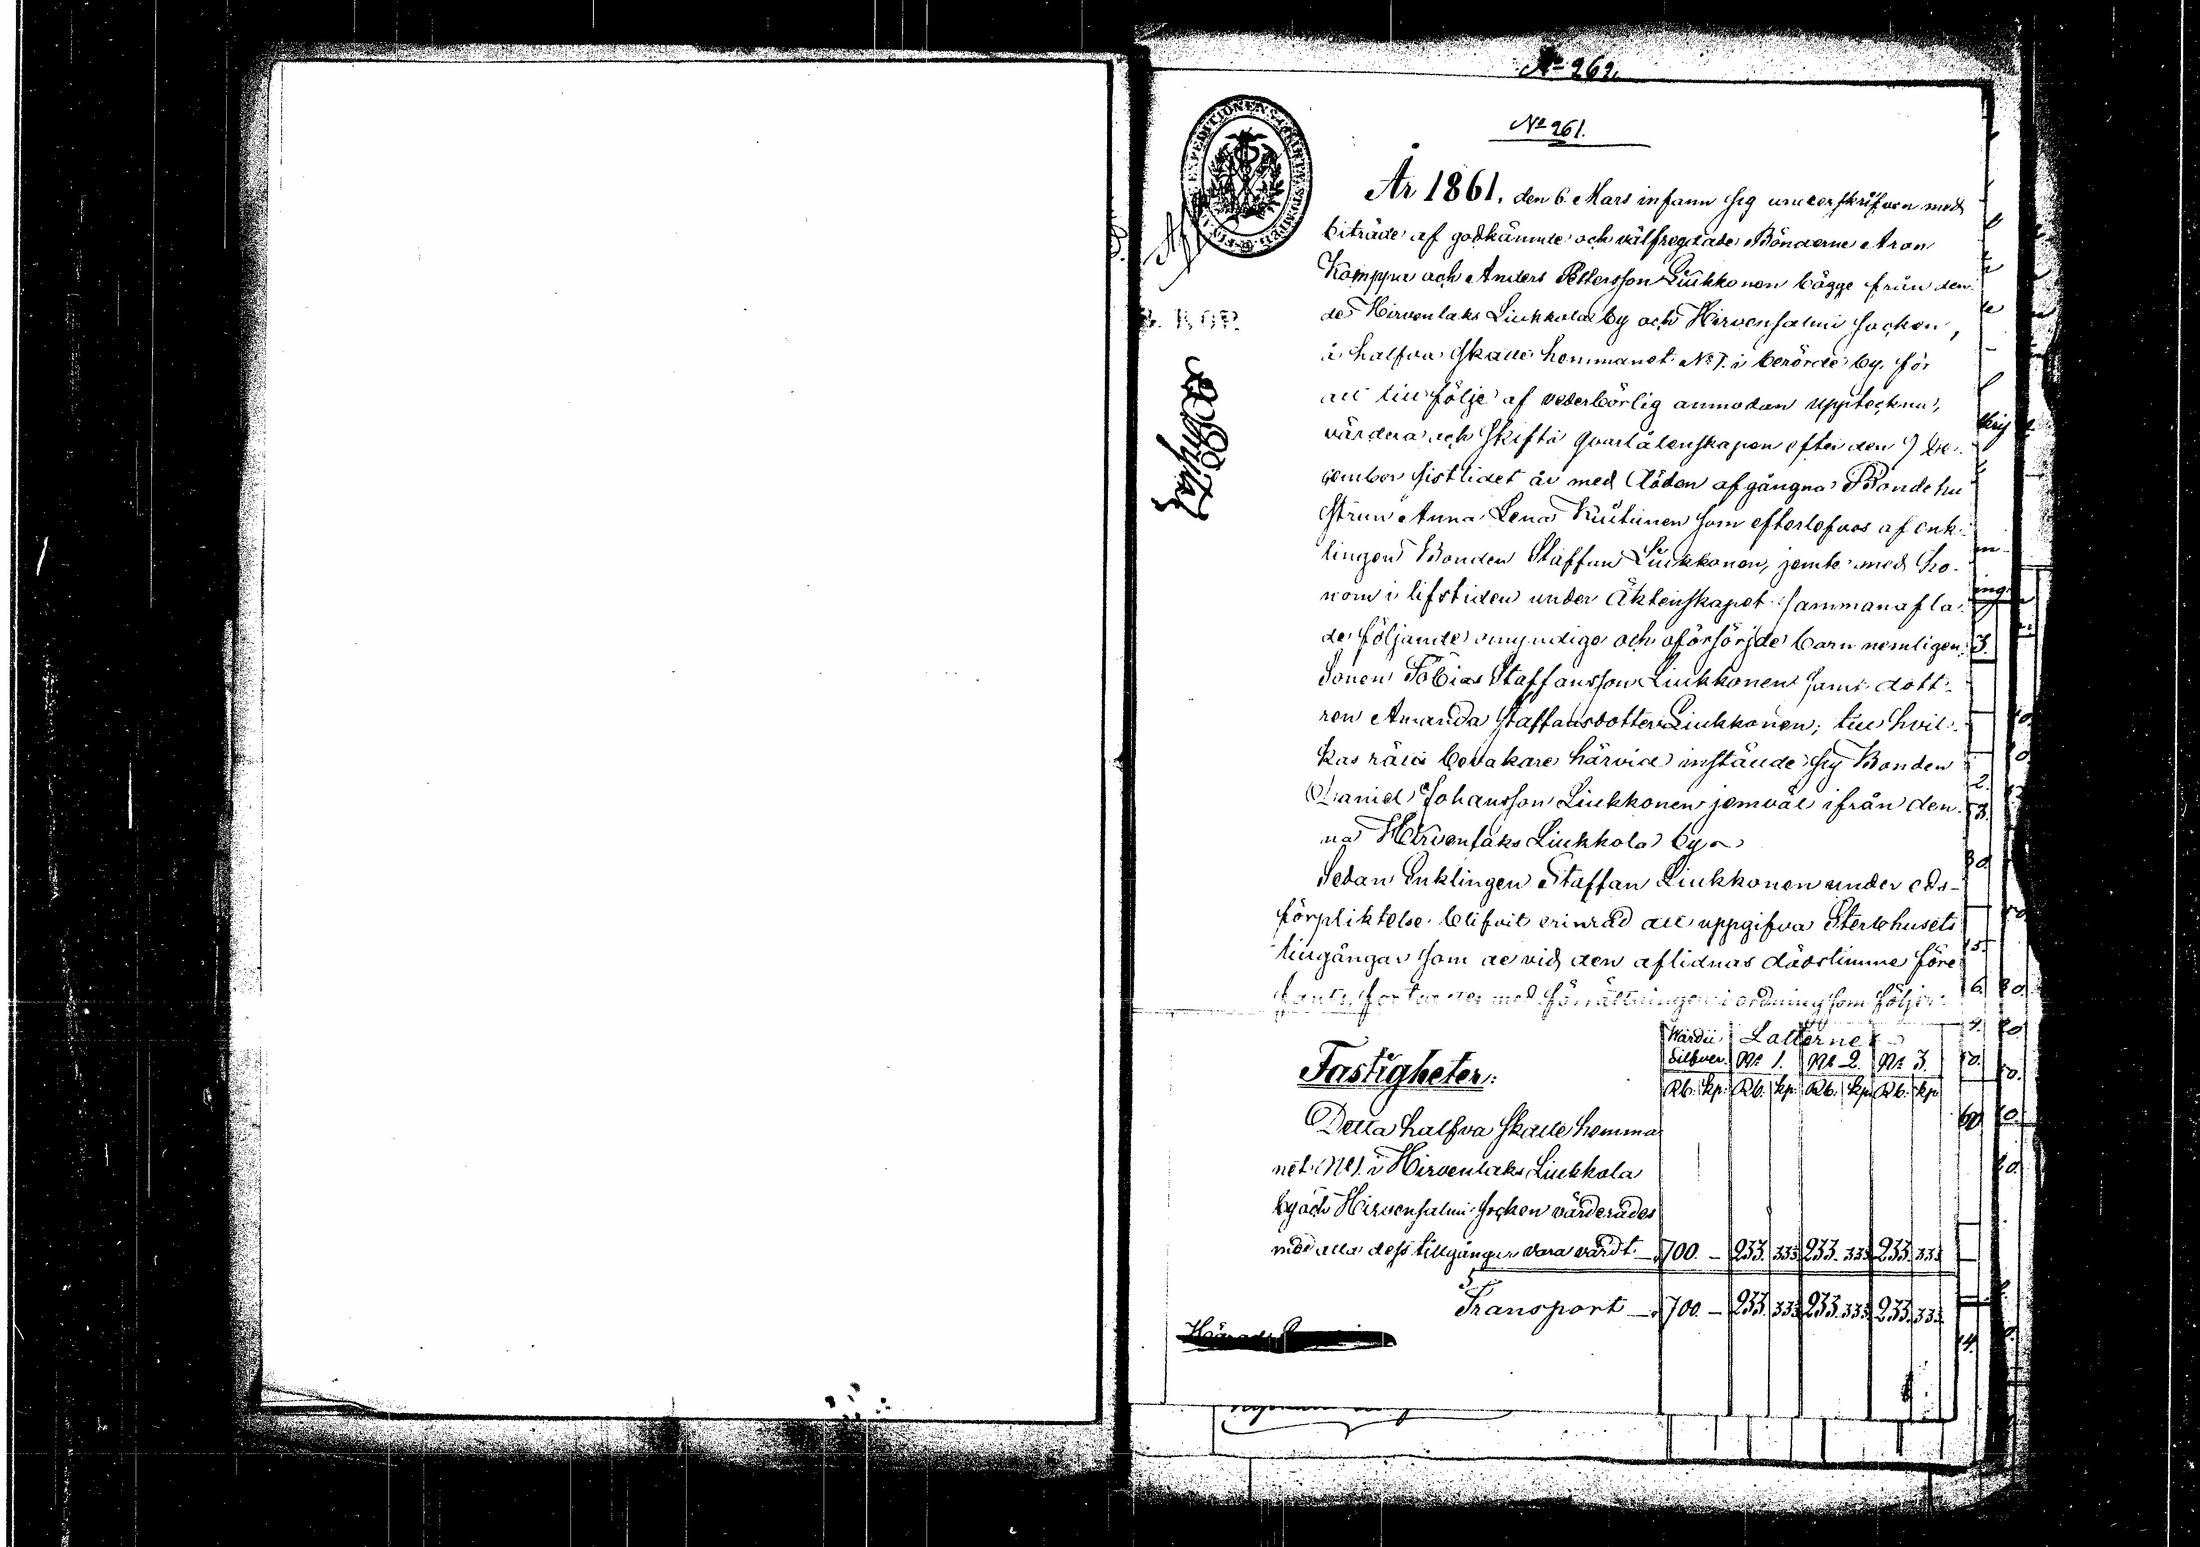 No 262.
No 261.
År 1861, den 6. Mars infann sig underskrifven med
biträde af godkännde och välfregdade Bönderne Aron
Komppa och Anders Pettersson Liukkonen bägge från den
de Hirvenlaks Liukkola by och Hirvensalmi socken,
å halfva skatte hemmanet No 1. i berörde by, för
att till följe af vederbörlig anmodan uppteckna,
värdera och skifta qvarlåtenskapen efter den 9 De-
cember sistlidet år med döden afgångna Bondehu
strun Anna Lena Kuitunen som efterlefvas af enk-
lingen Bonden Staffan Liukkonen, jemte med ho-
nom i lifstiden under äktenskapet sammanafla-
de följande omyndige och oförsörjde barn nemligen:
Sonen Tobias Staffansson Liukkonen samt dott-
ren Amanda Staffansdotter Liukkonen; till hvil-
kas rätts bevakare härvid inställde sig Bonden
Daniel Johansson Liukkonen jemväl ifrån den-
na Hirvenlaks Liukkola by.
Sedan Enklingen Staffan Liukkonen under eds-
förpliktelse blifvit erinrad att uppgifva Sterbhusets
tillgångar som de vid den aflidnas dödstimme före
fants, med förrättningen i ordning som följer:
Wärdie Lotterne
Silfver. No 1. No 2. No 3.
Fastigheter:
Rb. kp. Rb. kp. Rb. kp. Rb. kp.
Detta halfva skatte hemma
net No 1. i Hirvenlaks Liukkola
by och Hirvensalmi socken värderades
med alla dess tillgångar vara värdt 700. – 233. 333 233. 333 233. 333
Transport 700. – 233. 333 233. 333 233. 333